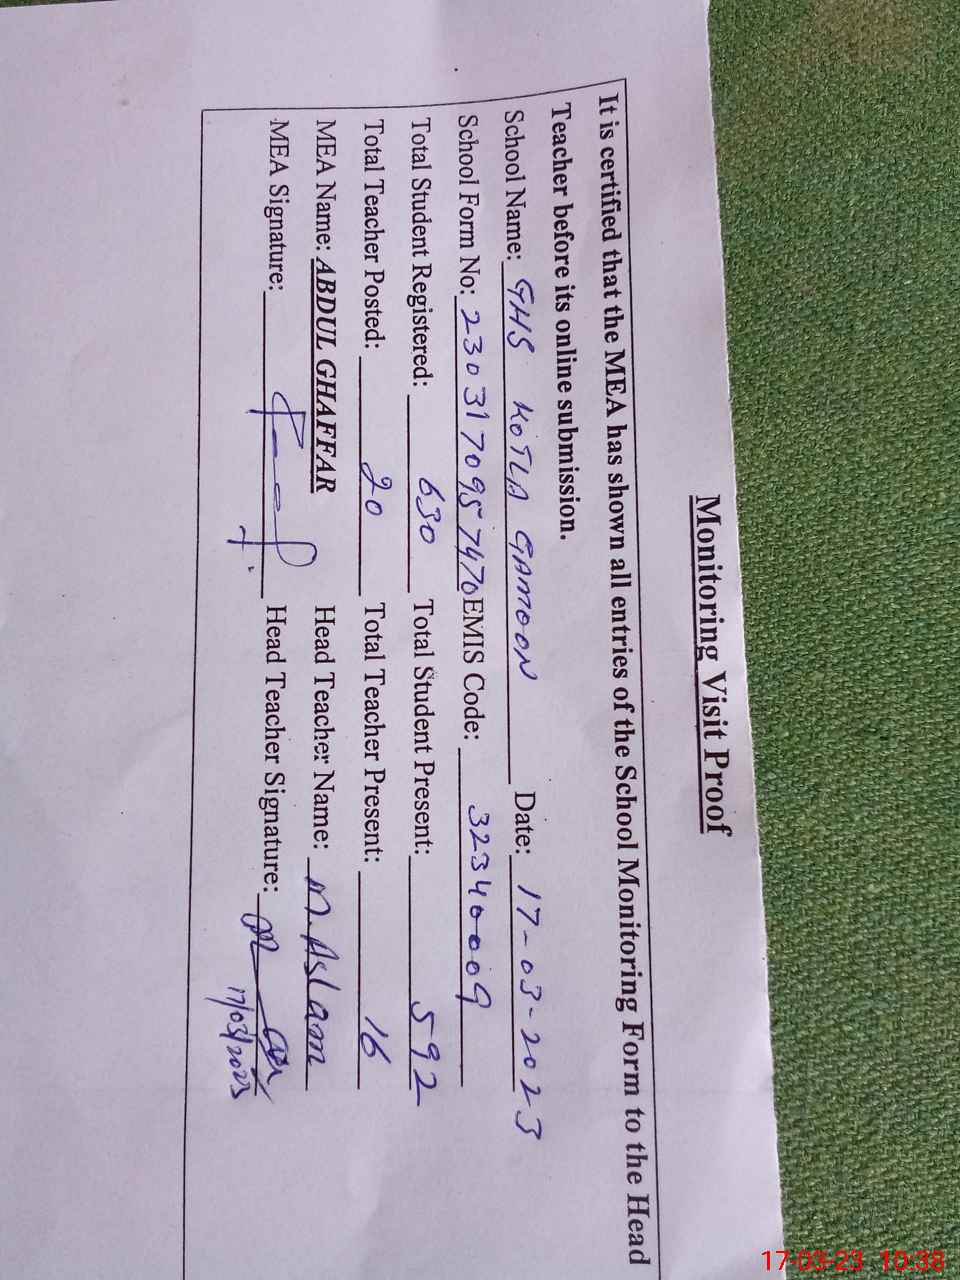 Monitoring Visit Proof
It is certified that the MEA has shown all entries of the School Monitoring Form to the Head
Teacher before its online submission.
School Name: GHS KOTLA GAMOON Date: 17-03-2023
School Form No: 2303170957470 EMIS Code: 32340009
Total Student Registered: 630 Total Student Present: 592
Total Teacher Posted: 20 Total Teacher Present: 16
MEA Name: ABDUL GHAFFAR Head Teacher Name: M. Aslam
MEA Signature: Head Teacher Signature:
17/03/2023
17-03-23 10:38